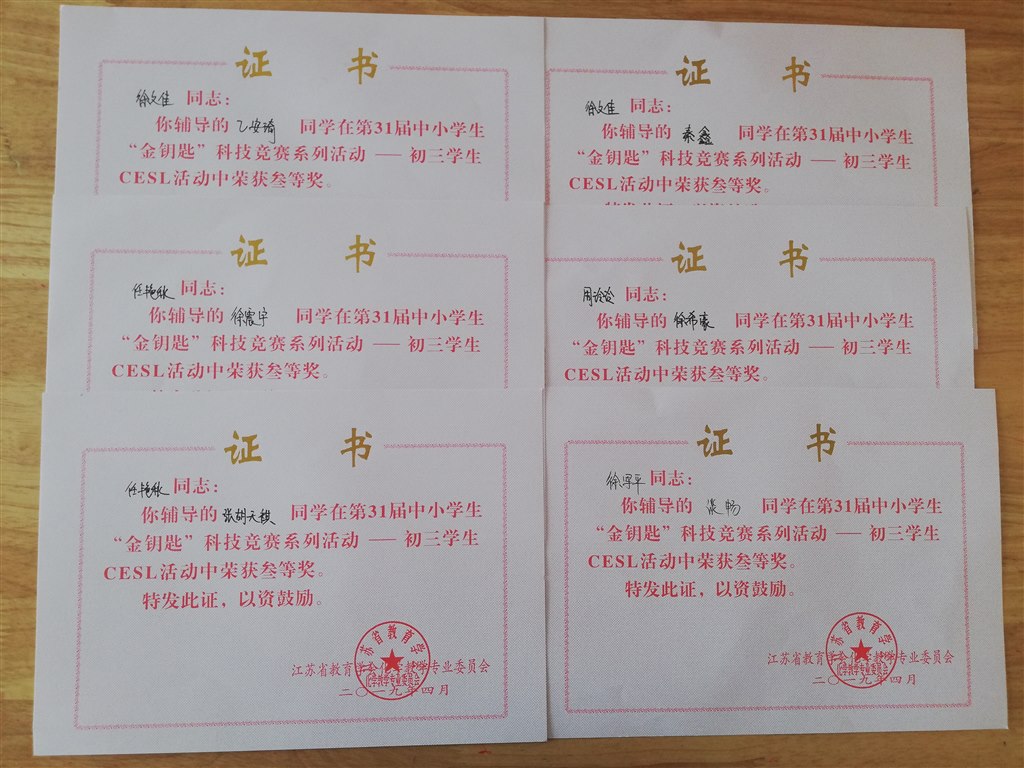 证 书
徐文佳 同志：
你辅导的 同学在第31届中小学生
“金钥匙”科技竞赛系列活动 —— 初三学生
CESL活动中荣获叁等奖。
证 书
徐文佳 同志：
你辅导的 秦鑫 同学在第31届中小学生
“金钥匙”科技竞赛系列活动 —— 初三学生
CESL活动中荣获叁等奖。
证 书
任艳秋 同志：
你辅导的 徐震宇 同学在第31届中小学生
“金钥匙”科技竞赛系列活动 —— 初三学生
CESL活动中荣获叁等奖。
证 书
同志：
你辅导的 徐希豪 同学在第31届中小学生
“金钥匙”科技竞赛系列活动 —— 初三学生
CESL活动中荣获叁等奖。
证 书
任艳秋 同志：
你辅导的 张胡天祺 同学在第31届中小学生
“金钥匙”科技竞赛系列活动 —— 初三学生
CESL活动中荣获叁等奖。
特发此证，以资鼓励。
江苏省教育学会化学教学专业委员会
二〇一九年四月
证 书
同志：
你辅导的 同学在第31届中小学生
“金钥匙”科技竞赛系列活动 —— 初三学生
CESL活动中荣获叁等奖。
特发此证，以资鼓励。
江苏省教育学会化学教学专业委员会
二〇一九年四月